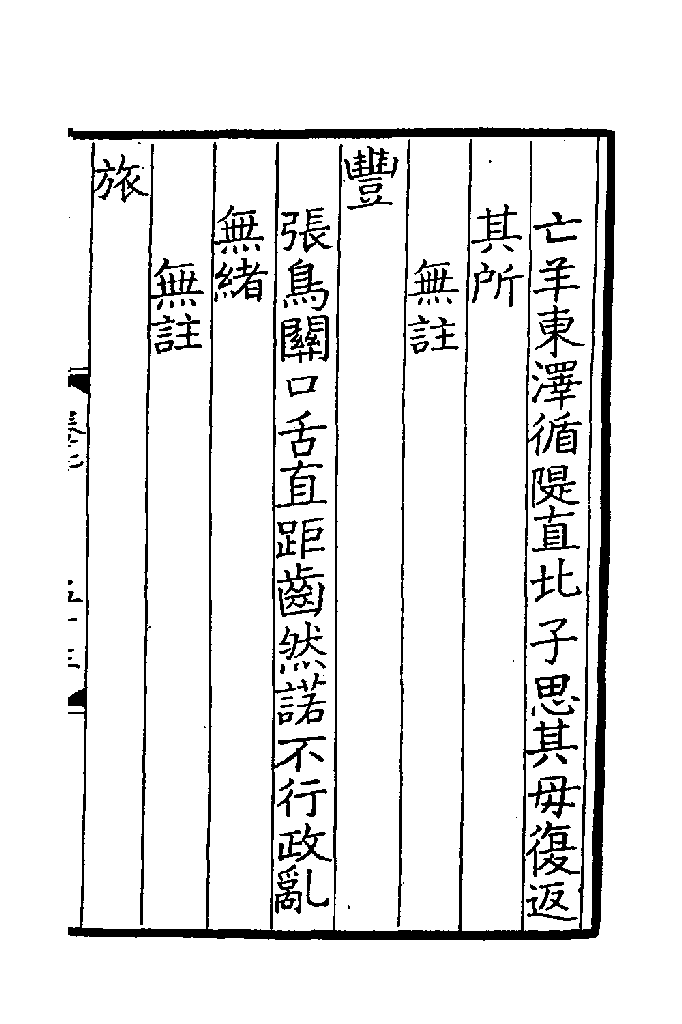 亡羊東澤循隄直北子思其毋復返
其所
無註
豐
張鳥關口舌直距齒然諾不行政亂
無緒
無註
旅